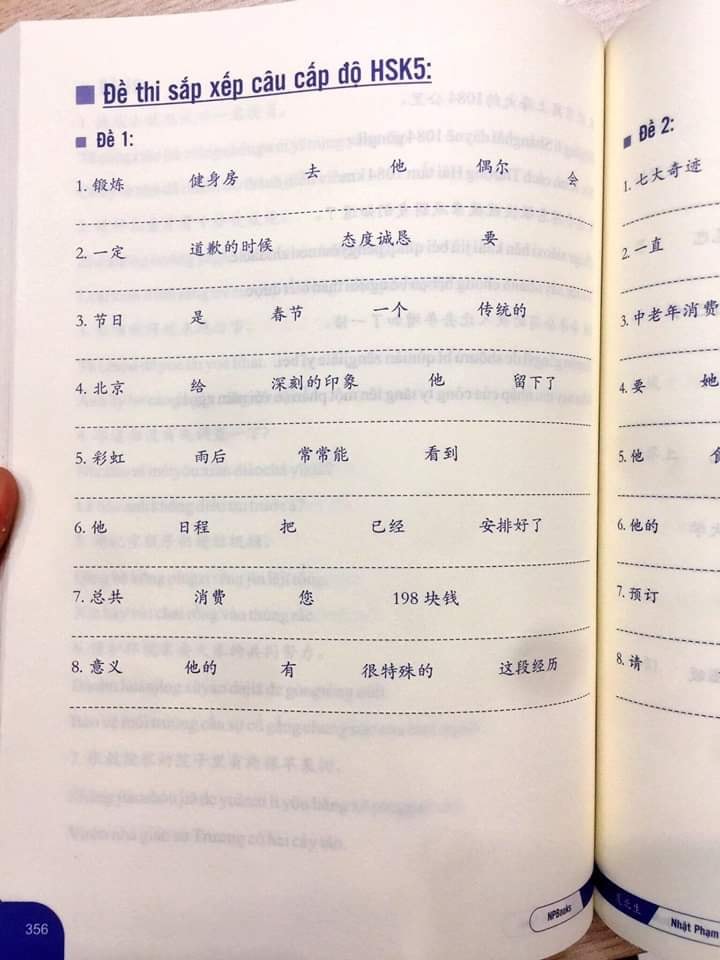 Đề thi sắp xếp câu cấp độ HSK5:
Đề 1:
1. 锻炼 健身房 去 他 偶尔 会
2. 一定 道歉的时候 态度诚恳 要
3. 节日 是 春节 一个 传统的
4. 北京 给 深刻的印象 他 留下了
5. 彩虹 雨后 常常能 看到
6. 他 日程 把 已经 安排好了
7. 总共 消费 您 198 块钱
8. 意义 他的 有 很特殊的 这段经历
356
NPBooks
Đề 2:
1. 七大奇迹
2. 一直
3. 中老年消费
4. 要 她
5. 他
6. 他的
7. 预订
8. 请
Nhật Phạm